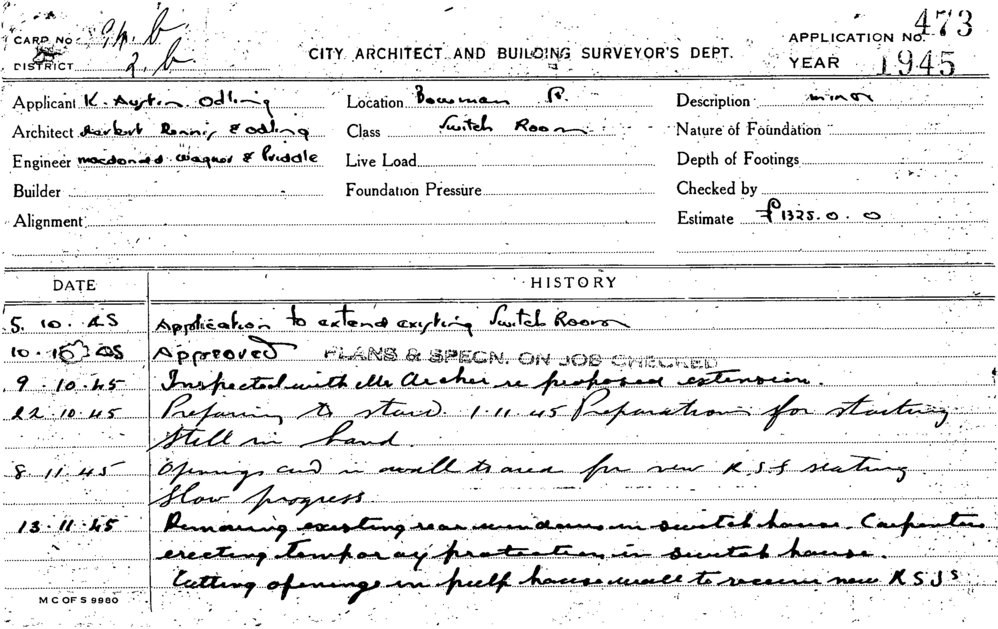 CARD No.
DISTRICT 2.b
CITY ARCHITECT AND BUILDING SURVEYOR'S DEPT.
APPLICATION No. 473
YEAR 1945
Applicant K. Austin Odling
Location Bowman St.
Description minor
Architect Herbert Dennis & Odling
Class Switch Room
Nature of Foundation
Engineer Macdonald Wagner & Priddle
Live Load
Depth of Footings
Builder
Foundation Pressure
Checked by
Alignment
Estimate £1325.0.0
DATE HISTORY
5.10.45 Application to extend existing Switch Room
10.10.45 Approved PLANS & SPECN. ON JOB CHECKED
9.10.45 Inspected with Mr Archer re proposed extension.
22.10.45 Preparing to start 1.11.45 Preparations for starting
still in hand.
8.11.45 Openings in wall for new R.S.J seating
Slow progress
13.11.45 Removing existing rear windows in switch house. Carpenters
erecting temporary protection in switch house.
Cutting openings in pulp house wall to receive new R S Js
M C OF S 9980